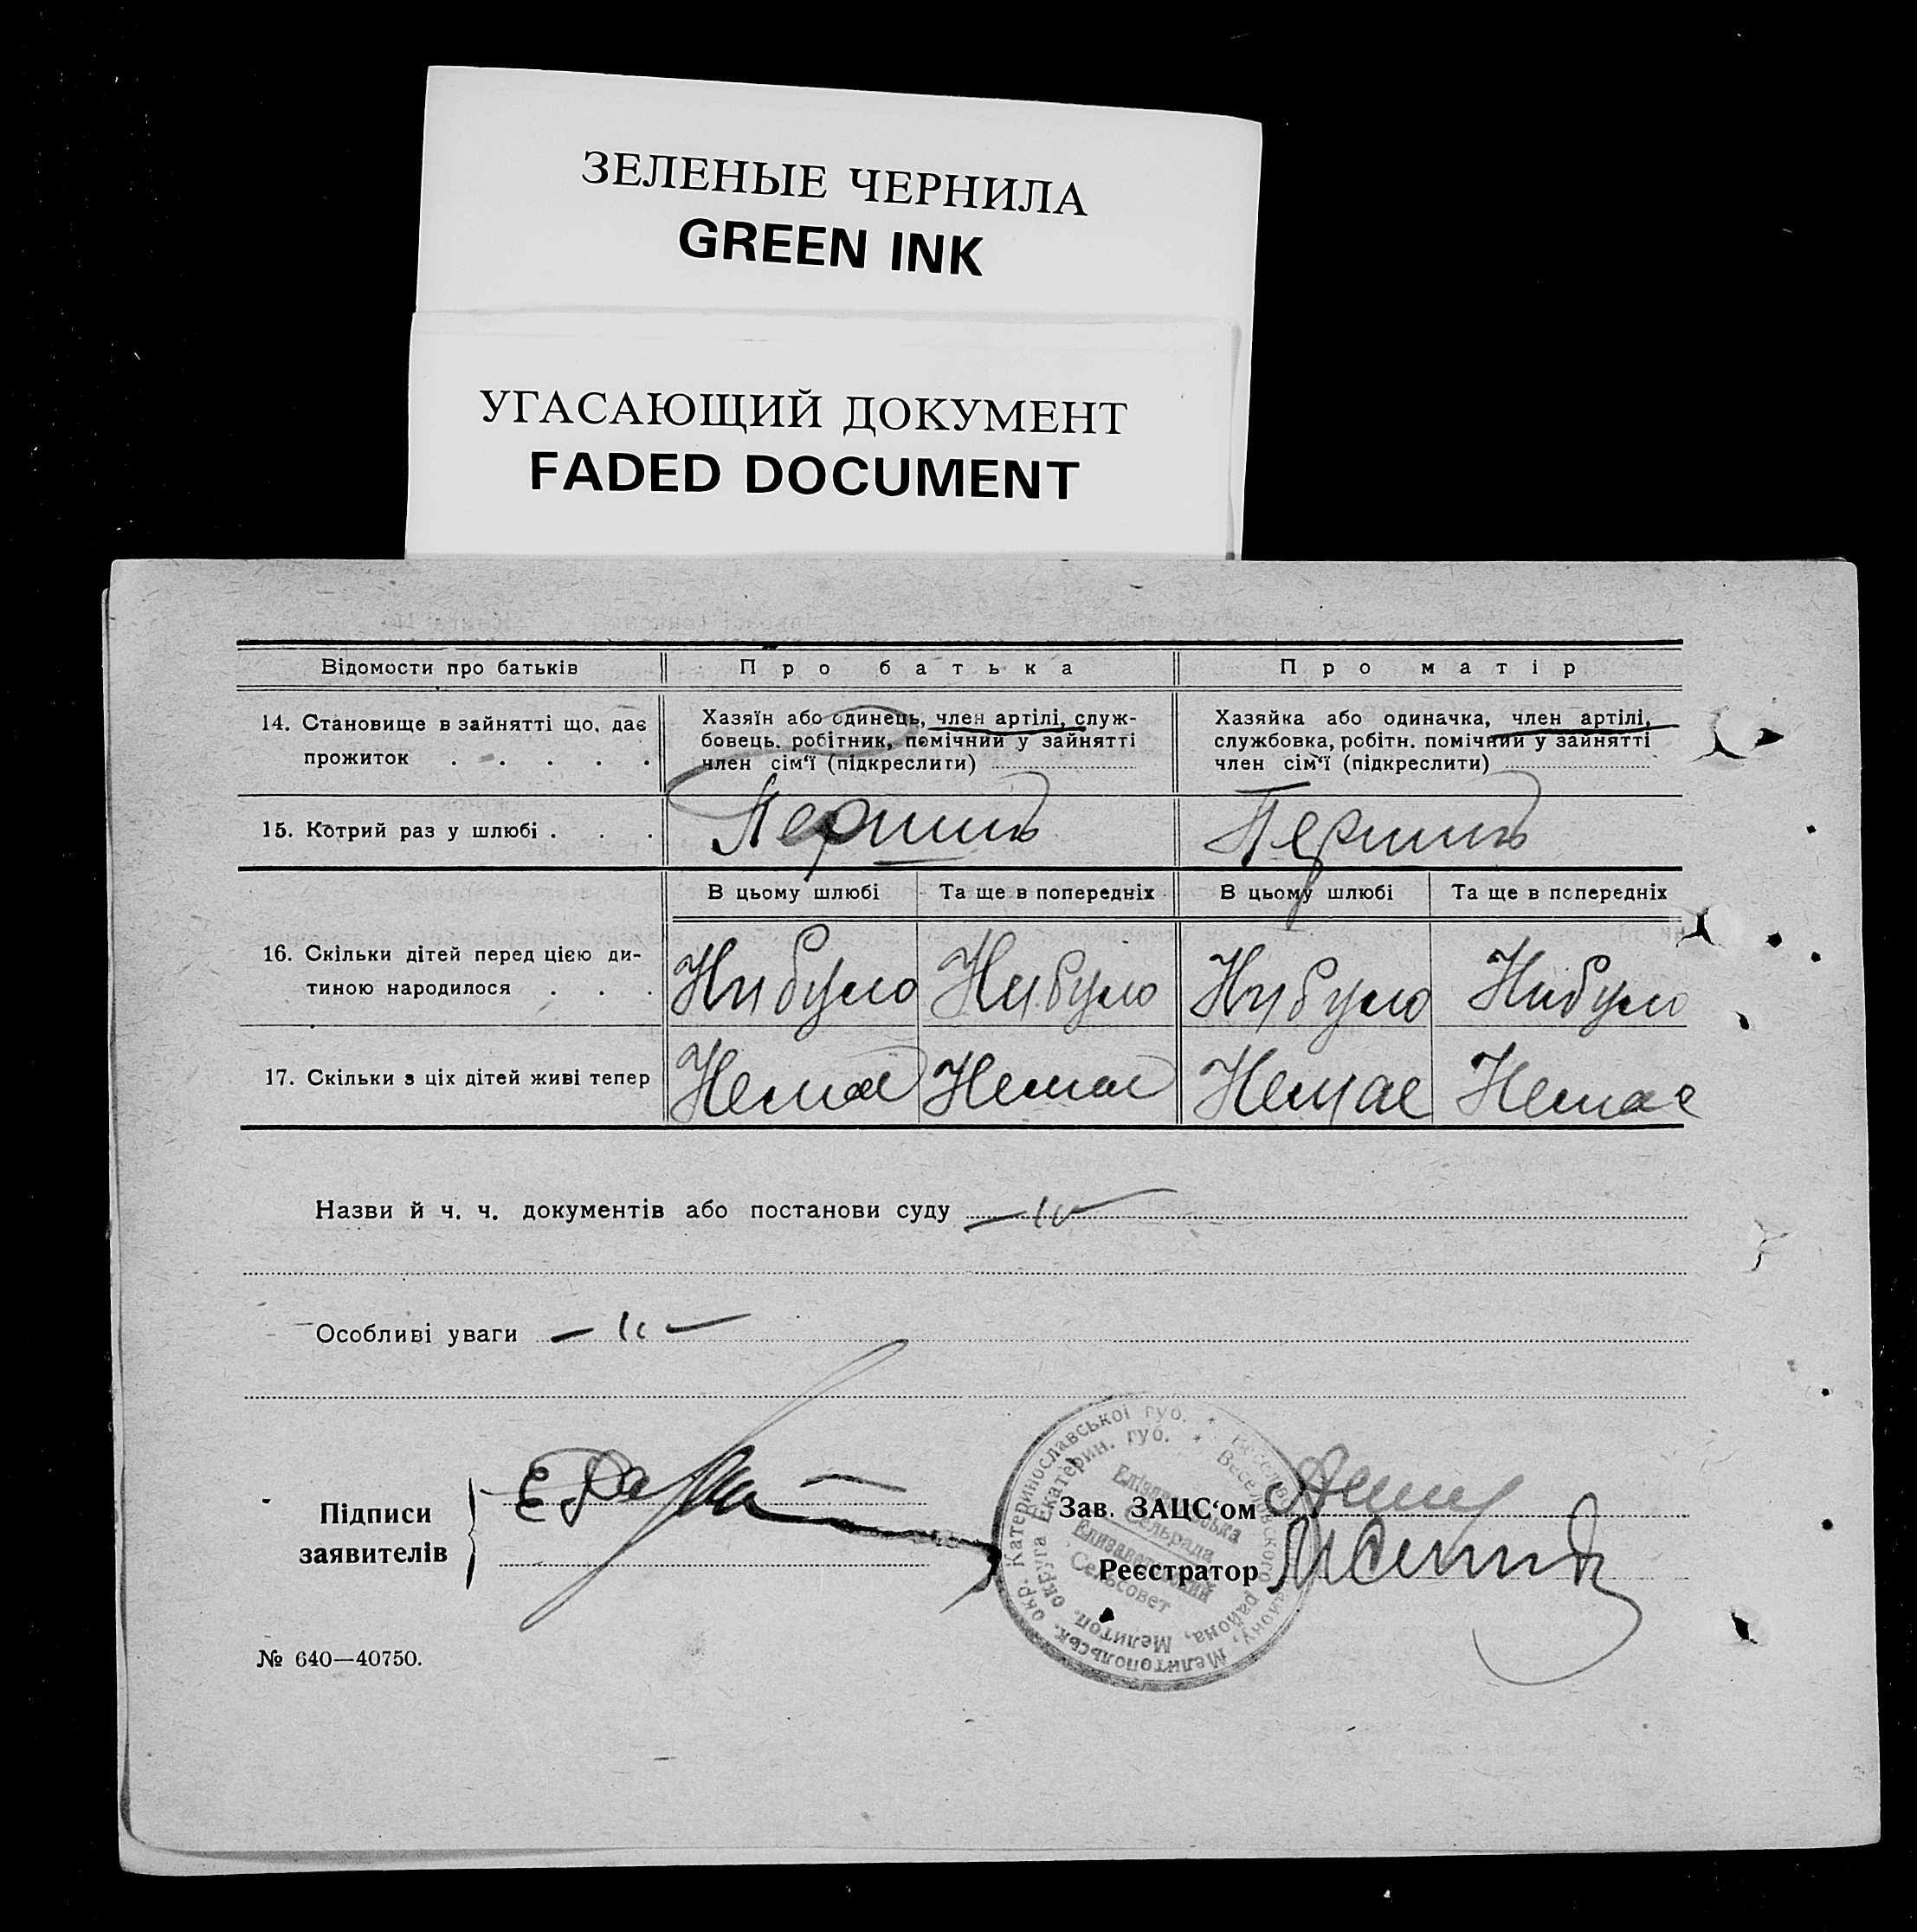 ЗЕЛЕНЫЕ ЧЕРНИЛА
GREEN INK
УГАСАЮЩИЙ ДОКУМЕНТ
FADED DOCUMENT
Відомости про батьків
Про батька
Про матір
14. Становище в зайнятті що, дає
прожиток . . . . .
Хазяїн або одинець, член артілі, служ-
бовець. робітник, помічний у зайнятті
член сім‘ї (підкреслити)
Хазяйка або одиначка, член артілі,
службовка, робітн. помічний у зайнятті
член сім‘ї (підкреслити)
15. Котрий раз у шлюбі . . .
Перший
Перший
В цьому шлюбі
Та ще в попередніх
В цьому шлюбі
Та ще в попередніх
16. Скільки дітей перед цією ди-
тиною народилося . . .
Нибуло Нибуло Нибуло Нибуло
17. Скільки з ціх дітей живі тепер
Немае Немае Немае Немае
Назви й ч. ч. документів або постанови суду — " —
Особливі уваги — " —
Підписи
заявителів
Зав. ЗАЦС‘ом
Реєстратор
Мелитопольськ. окр. Катеринославської губ. *
района, Мелитоп. округа Екатерин. губ. *
Сельрада
Елизаветовский
Сельсовет
№ 640—40750.